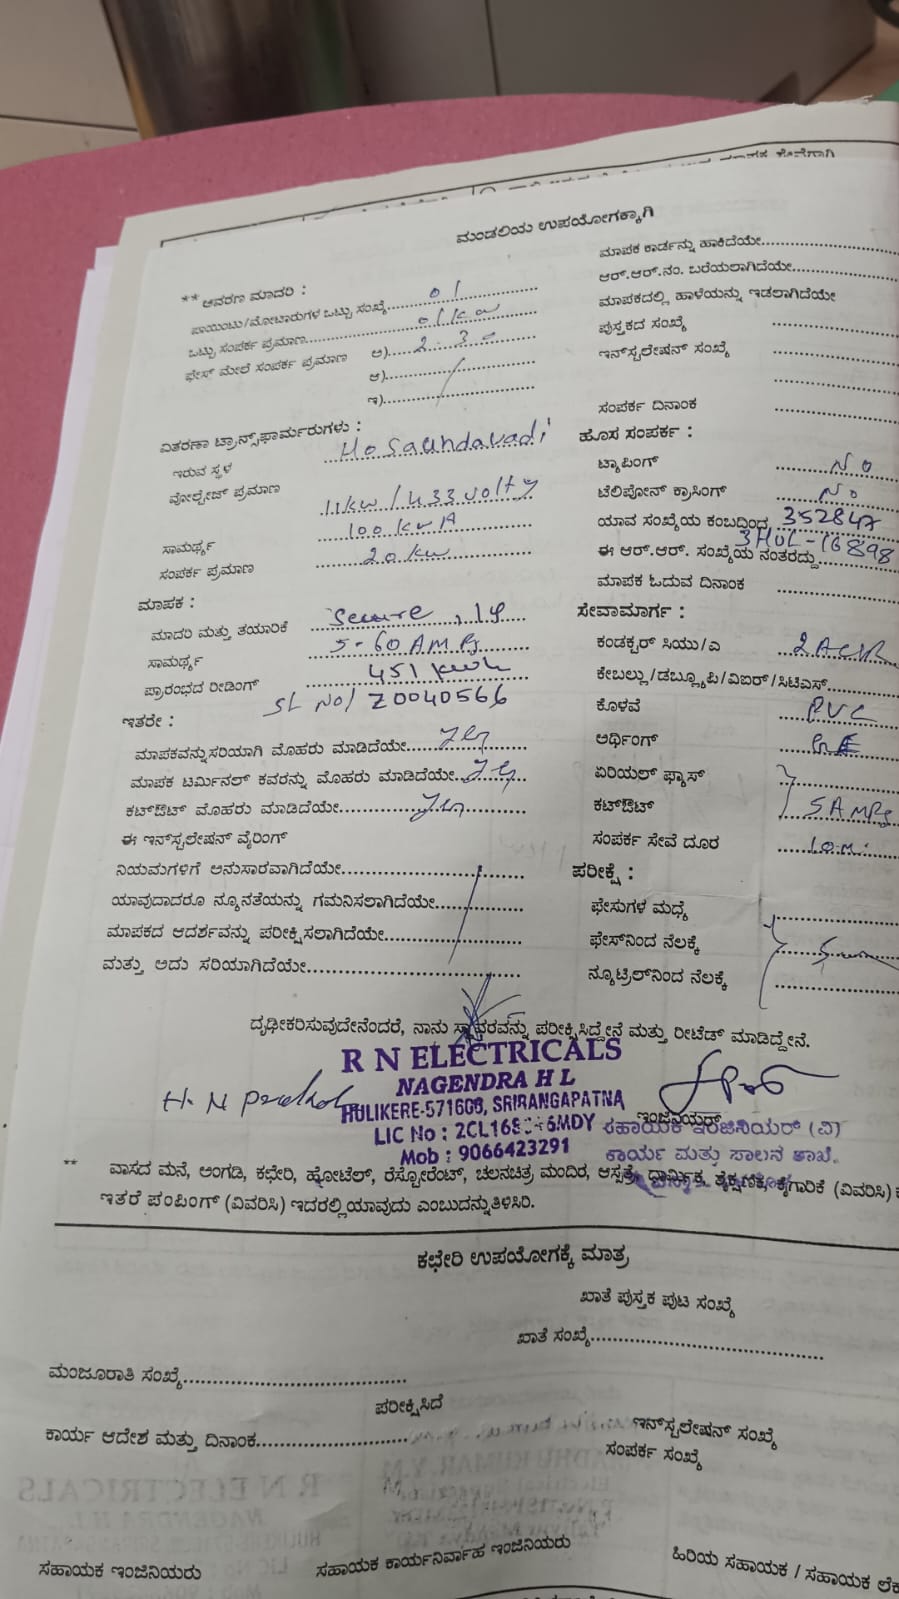 ಮಂಡಲಿಯ ಉಪಯೋಗಕ್ಕಾಗಿ
** ಆವರಣ ಮಾದರಿ :
ಪಾಯಿಂಟು/ಮೋಟಾರುಗಳ ಒಟ್ಟು ಸಂಖ್ಯೆ 01
ಒಟ್ಟು ಸಂಪರ್ಕ ಪ್ರಮಾಣ 01kw
ಫೇಸ್ ಮೇಲೆ ಸಂಪರ್ಕ ಪ್ರಮಾಣ ಅ)
ಆ)
ಇ)
ವಿತರಣಾ ಟ್ರಾನ್ಸ್‌ಫಾರ್ಮರುಗಳು :
ಇರುವ ಸ್ಥಳ Hosaundavadi
ವೋಲ್ಟೇಜ್ ಪ್ರಮಾಣ 11kw/433volty
ಸಾಮರ್ಥ್ಯ 100kvA
ಸಂಪರ್ಕ ಪ್ರಮಾಣ 20kw
ಮಾಪಕ :
ಮಾದರಿ ಮತ್ತು ತಯಾರಿಕೆ Secure, 1φ
ಸಾಮರ್ಥ್ಯ 5-60AMPs
ಪ್ರಾರಂಭದ ರೀಡಿಂಗ್ 451kwh
SL No/ Z0040566
ಇತರೇ :
ಮಾಪಕವನ್ನು ಸರಿಯಾಗಿ ಮೊಹರು ಮಾಡಿದೆಯೇ
ಮಾಪಕ ಟರ್ಮಿನಲ್ ಕವರನ್ನು ಮೊಹರು ಮಾಡಿದೆಯೇ
ಕಟ್‌ಔಟ್ ಮೊಹರು ಮಾಡಿದೆಯೇ
ಈ ಇನ್‌ಸ್ಟಲೇಷನ್ ವೈರಿಂಗ್
ನಿಯಮಗಳಿಗೆ ಅನುಸಾರವಾಗಿದೆಯೇ
ಯಾವುದಾದರೂ ನ್ಯೂನತೆಯನ್ನು ಗಮನಿಸಲಾಗಿದೆಯೇ
ಮಾಪಕದ ಆದರ್ಶವನ್ನು ಪರೀಕ್ಷಿಸಲಾಗಿದೆಯೇ
ಮತ್ತು ಅದು ಸರಿಯಾಗಿದೆಯೇ
ಮಾಪಕ ಕಾರ್ಡನ್ನು ಹಾಕಿದೆಯೇ
ಆರ್.ಆರ್.ನಂ. ಬರೆಯಲಾಗಿದೆಯೇ
ಮಾಪಕದಲ್ಲಿ ಹಾಳೆಯನ್ನು ಇಡಲಾಗಿದೆಯೇ
ಪುಸ್ತಕದ ಸಂಖ್ಯೆ
ಇನ್‌ಸ್ಟಲೇಷನ್ ಸಂಖ್ಯೆ
ಸಂಪರ್ಕ ದಿನಾಂಕ
ಹೊಸ ಸಂಪರ್ಕ :
ಟ್ಯಾಪಿಂಗ್ No
ಟೆಲಿಪೋನ್ ಕ್ರಾಸಿಂಗ್ No
ಯಾವ ಸಂಖ್ಯೆಯ ಕಂಬದ್ದಿಂದ
3HUL-16898
ಈ ಆರ್.ಆರ್. ಸಂಖ್ಯೆಯ ನಂತರದ್ದು
ಮಾಪಕ ಓದುವ ದಿನಾಂಕ
ಸೇವಾಮಾರ್ಗ :
ಕಂಡಕ್ಟರ್ ಸಿಯು/ಎ
ಕೇಬಲ್ಲು/ಡಬ್ಲ್ಯೂಪಿ/ವಿಐರ್/ಸಿಟಿಎಸ್
ಕೊಳವೆ PVC
ಅರ್ಥಿಂಗ್
ಏರಿಯಲ್ ಫ್ಯಾಸ್
ಕಟ್‌ಔಟ್ 5AMPs
ಸಂಪರ್ಕ ಸೇವೆ ದೂರ 10m.
ಪರೀಕ್ಷೆ :
ಫೇಸುಗಳ ಮಧ್ಯೆ
ಫೇಸ್‌ನಿಂದ ನೆಲಕ್ಕೆ
ನ್ಯೂಟ್ರಿಲ್‌ನಿಂದ ನೆಲಕ್ಕೆ
ದೃಢೀಕರಿಸುವುದೇನೆಂದರೆ, ನಾನು ಸ್ಥಾವರವನ್ನು ಪರೀಕ್ಷಿಸಿದ್ದೇನೆ ಮತ್ತು ರೀಟೆಡ್ ಮಾಡಿದ್ದೇನೆ.
R N ELECTRICALS
NAGENDRA H L
HULIKERE-571606, SRIRANGAPATNA
LIC No :
Mob : 9066423291
ಇಂಜಿನಿಯರ್
ಸಹಾಯಕ ಇಂಜಿನಿಯರ್ (ವಿ)
ಕಾರ್ಯ ಮತ್ತು ಪಾಲನೆ ಶಾಖೆ
** ವಾಸದ ಮನೆ, ಅಂಗಡಿ, ಕಛೇರಿ, ಹೋಟೆಲ್, ರೆಸ್ಟೋರೆಂಟ್, ಚಲನಚಿತ್ರ ಮಂದಿರ, ಆಸ್ಪತ್ರೆ, ಧಾರ್ಮಿಕ, ಶೈಕ್ಷಣಿಕ, ಕೈಗಾರಿಕೆ (ವಿವರಿಸಿ)
ಇತರೆ ಪಂಪಿಂಗ್ (ವಿವರಿಸಿ) ಇದರಲ್ಲಿ ಯಾವುದು ಎಂಬುದನ್ನು ತಿಳಿಸಿರಿ.
ಕಛೇರಿ ಉಪಯೋಗಕ್ಕೆ ಮಾತ್ರ
ಖಾತೆ ಪುಸ್ತಕ ಪುಟ ಸಂಖ್ಯೆ
ಖಾತೆ ಸಂಖ್ಯೆ
ಮಂಜೂರಾತಿ ಸಂಖ್ಯೆ
ಪರೀಕ್ಷಿಸಿದೆ
ಕಾರ್ಯ ಆದೇಶ ಮತ್ತು ದಿನಾಂಕ
ಇನ್‌ಸ್ಟಲೇಷನ್ ಸಂಖ್ಯೆ
ಸಂಪರ್ಕ ಸಂಖ್ಯೆ
ಸಹಾಯಕ ಇಂಜಿನಿಯರು
ಸಹಾಯಕ ಕಾರ್ಯನಿರ್ವಾಹ ಇಂಜಿನಿಯರು
ಹಿರಿಯ ಸಹಾಯಕ / ಸಹಾಯಕ